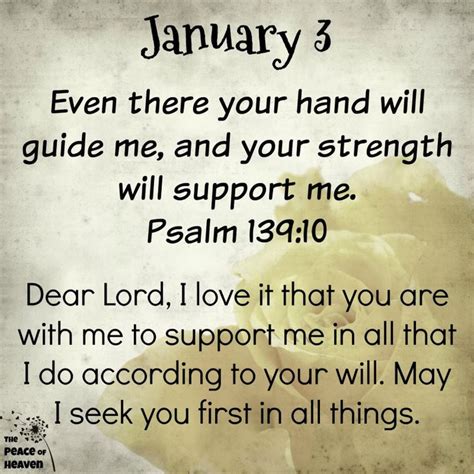 January 3
Even there your hand will
guide me, and your strength
will support me.
Psalm 139:10
Dear Lord, I love it that you are
with me to support me in all that
I do according to your will. May
I seek you first in all things.
The
Peace of
Heaven